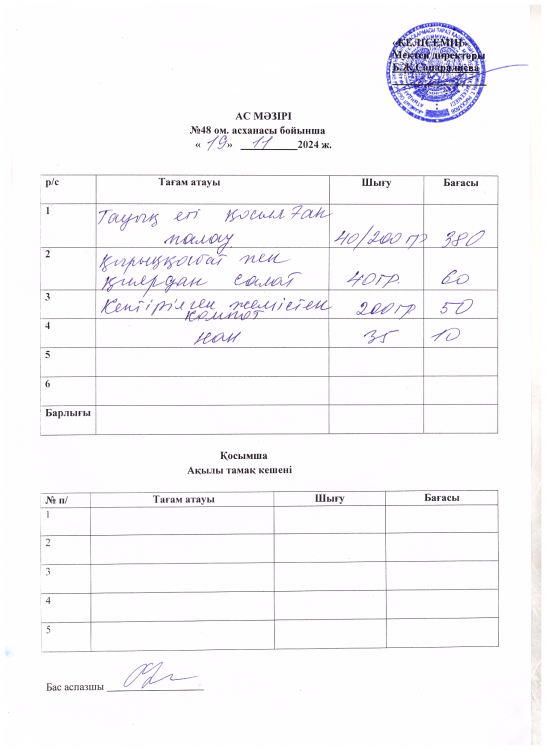 «КЕЛІСЕМІН»
Мектеп директоры
Б.Ж.Сапаралиева
АС МӘЗІРІ
№48 ом. асханасы бойынша
« 19 » 11 2024 ж.
р/с Тағам атауы Шығу Бағасы
1 Тауық еті қосылған
палау 40/200 гр 380
2 Қырыққабат пен
қиярдан салат 40гр. 60
3 Кептірілген жемістен 200гр 50
компот
4 нан 35 10
5
6
Барлығы
Қосымша
Ақылы тамақ кешені
№ п/ Тағам атауы Шығу Бағасы
1
2
3
4
5
Бас аспазшы